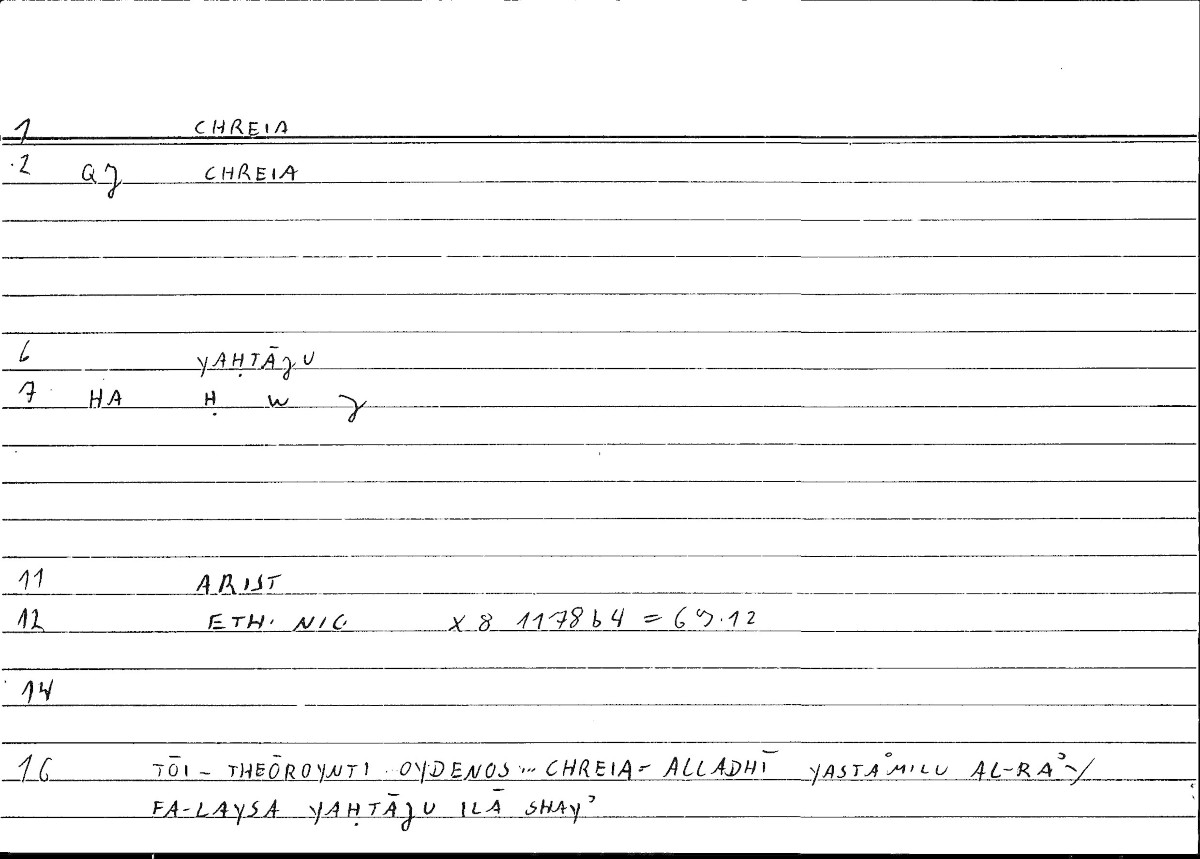 1 CHREIA
2 QJ CHREIA
6 YAḤTĀJU
7 HA Ḥ W J
11 ARIST
12 ETH. NIC. X 8 1178b4 =
14
16 TŌI - THEŌROYNTI OYDENOS... CHREIA = ALLADHĪ YASTAʿMILU AL-RAʾY
FA-LAYSA YAḤTĀJU ILĀ SHAYʾ